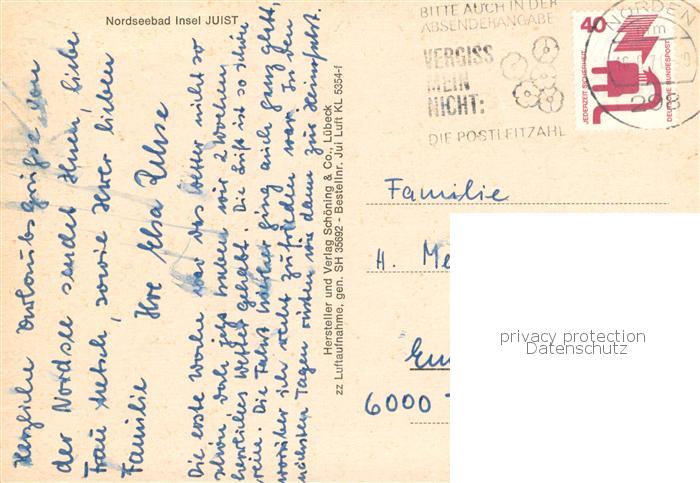 Nordseebad Insel JUIST
Herzliche Urlaubsgrüße von
der Nordsee sendet Ihnen, liebe
Frau Metsch, sowie Ihrer lieben
Familie
Ihre Elsa Rehse
Die erste Woche war das Wetter nicht so
schön, dafür jetzt haben wir 2 Wochen
herrliches Wetter gehabt. Die Luft ist so schön
rein. Die Fahrt hierher ging auch ganz glatt,
worüber ich recht zufrieden war. In den
nächsten Tagen rüsten wir dann zur Heimfahrt.
Hersteller und Verlag Schöning & Co., Lübeck
zz Luftaufnahme, gen. SH 35692 - Bestellnr. Jui Luft KL 5354-f
BITTE AUCH IN DER
ABSENDERANGABE
VERGISS
MEIN
NICHT:
DIE POSTLEITZAHL
NORDEN
298
40
JEDERZEIT SICHERHEIT
DEUTSCHE BUNDESPOST
Familie
H. Me
6000
privacy protection
Datenschutz